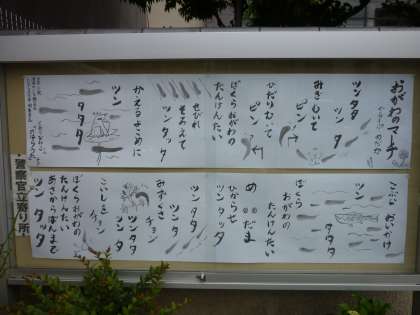 おがわのマーチ
ツンタタ
ツンタタ
みぎむいて
ピン
ひだりむいて
ピン
ぼくら おがわの
たんけんたい
せびれ
そろえて
ツンタッタ
かえるよこめに
ツン
タタタ
こぶな おいかけ
ツン
タタタ
ぼくら
おがわの
たんけんたい
めだま
ひからせ
ツンタッタ
ツンタタ
ツンタタ
みずくさ
チョン
ツンタタ
ツンタタ
こいしを
チョン
ぼくらおがわの
たんけんたい
あさからばんまで
ツンタッタ
警察官立寄り所